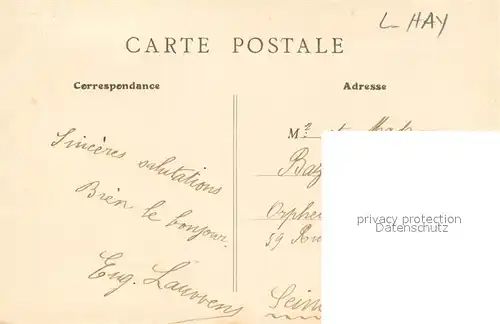 L HAY
CARTE POSTALE
Correspondance
Adresse
Sincères salutations
Bien le bonjour.
Eug. Lauwens
Mr et Mad
Baz
Orphe
59 Rue
Sein
privacy protection
Datenschutz